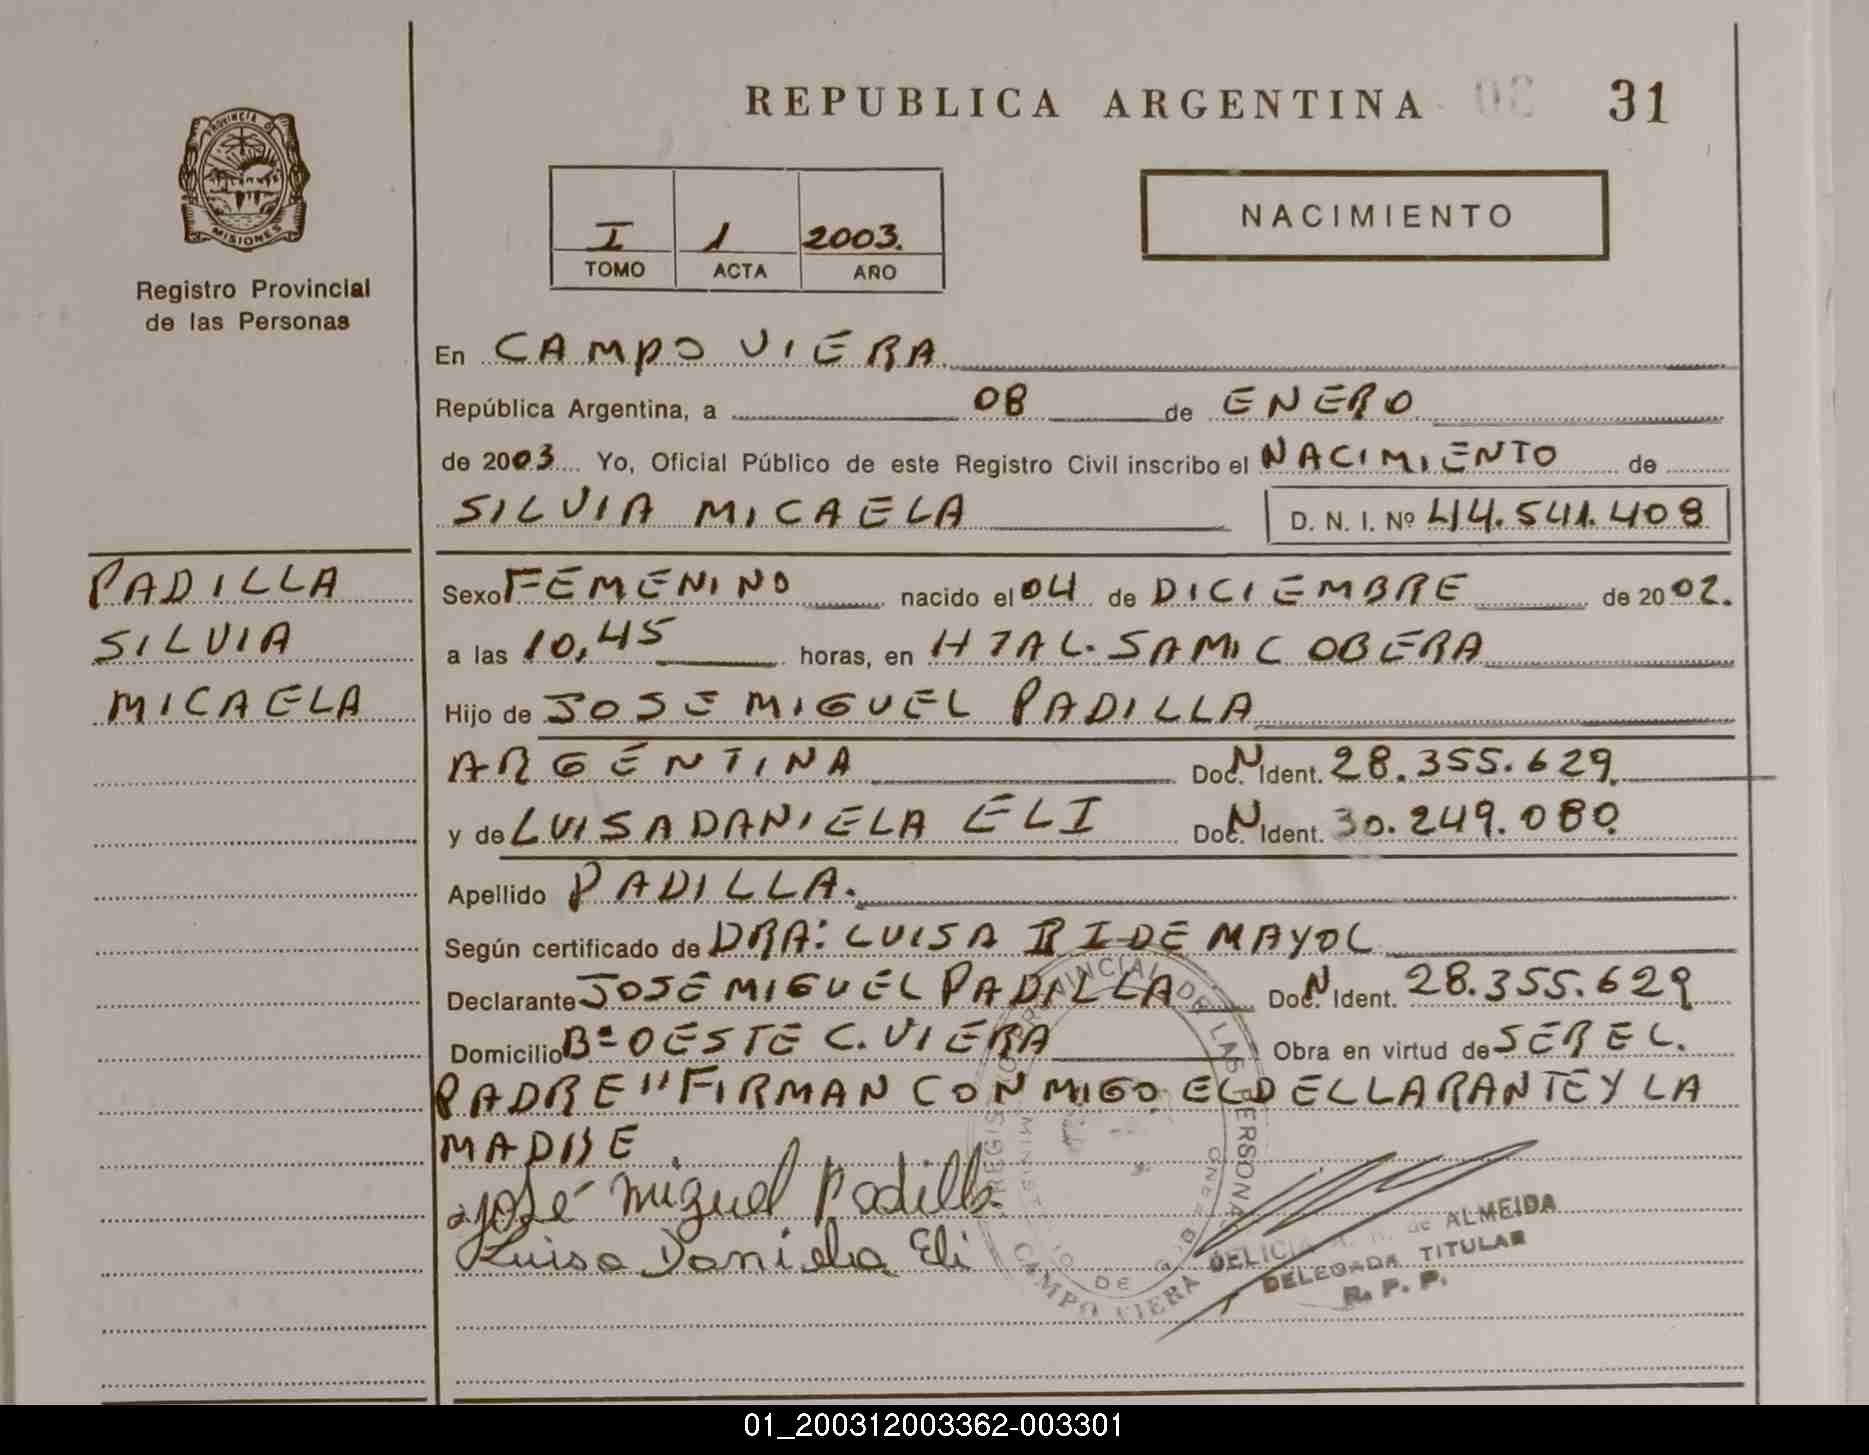 REPUBLICA ARGENTINA 31
PROVINCIA D
MISIONES
Registro Provincial
de las Personas
I 1 2003.
TOMO ACTA AÑO
NACIMIENTO
En CAMPO VIERA
República Argentina, a 08 de ENERO
de 2003 Yo, Oficial Público de este Registro Civil inscribo el NACIMIENTO de
SILVIA MICAELA D. N. I. Nº 44.541.408
PADILLA
SILVIA
MICAELA
Sexo FEMENINO nacido el 04 de DICIEMBRE de 2002.
a las 10,45 horas, en HTAL. SAMIC OBERA
Hijo de JOSE MIGUEL PADILLA
ARGENTINA Doc. N Ident. 28.355.629.
y de LUISA DANIELA ELI Doc. N Ident. 30.249.080.
Apellido PADILLA.
Según certificado de DRA: LUISA DE MAYOL
Declarante JOSE MIGUEL PADILLA Doc. N Ident. 28.355.629
Domicilio Bº OESTE C. VIERA Obra en virtud de SER EL.
PADRE" FIRMAN CONMIGO EL DELLARANTE Y LA
MADRE
José Miguel Padilla
Luisa Daniela Eli
REGISTRO PROVINCIAL DE LAS PERSONAS
CAMPO VIERA
DELICIA de ALMEIDA
DELEGADA TITULAR
R. P. P.
01_200312003362-003301